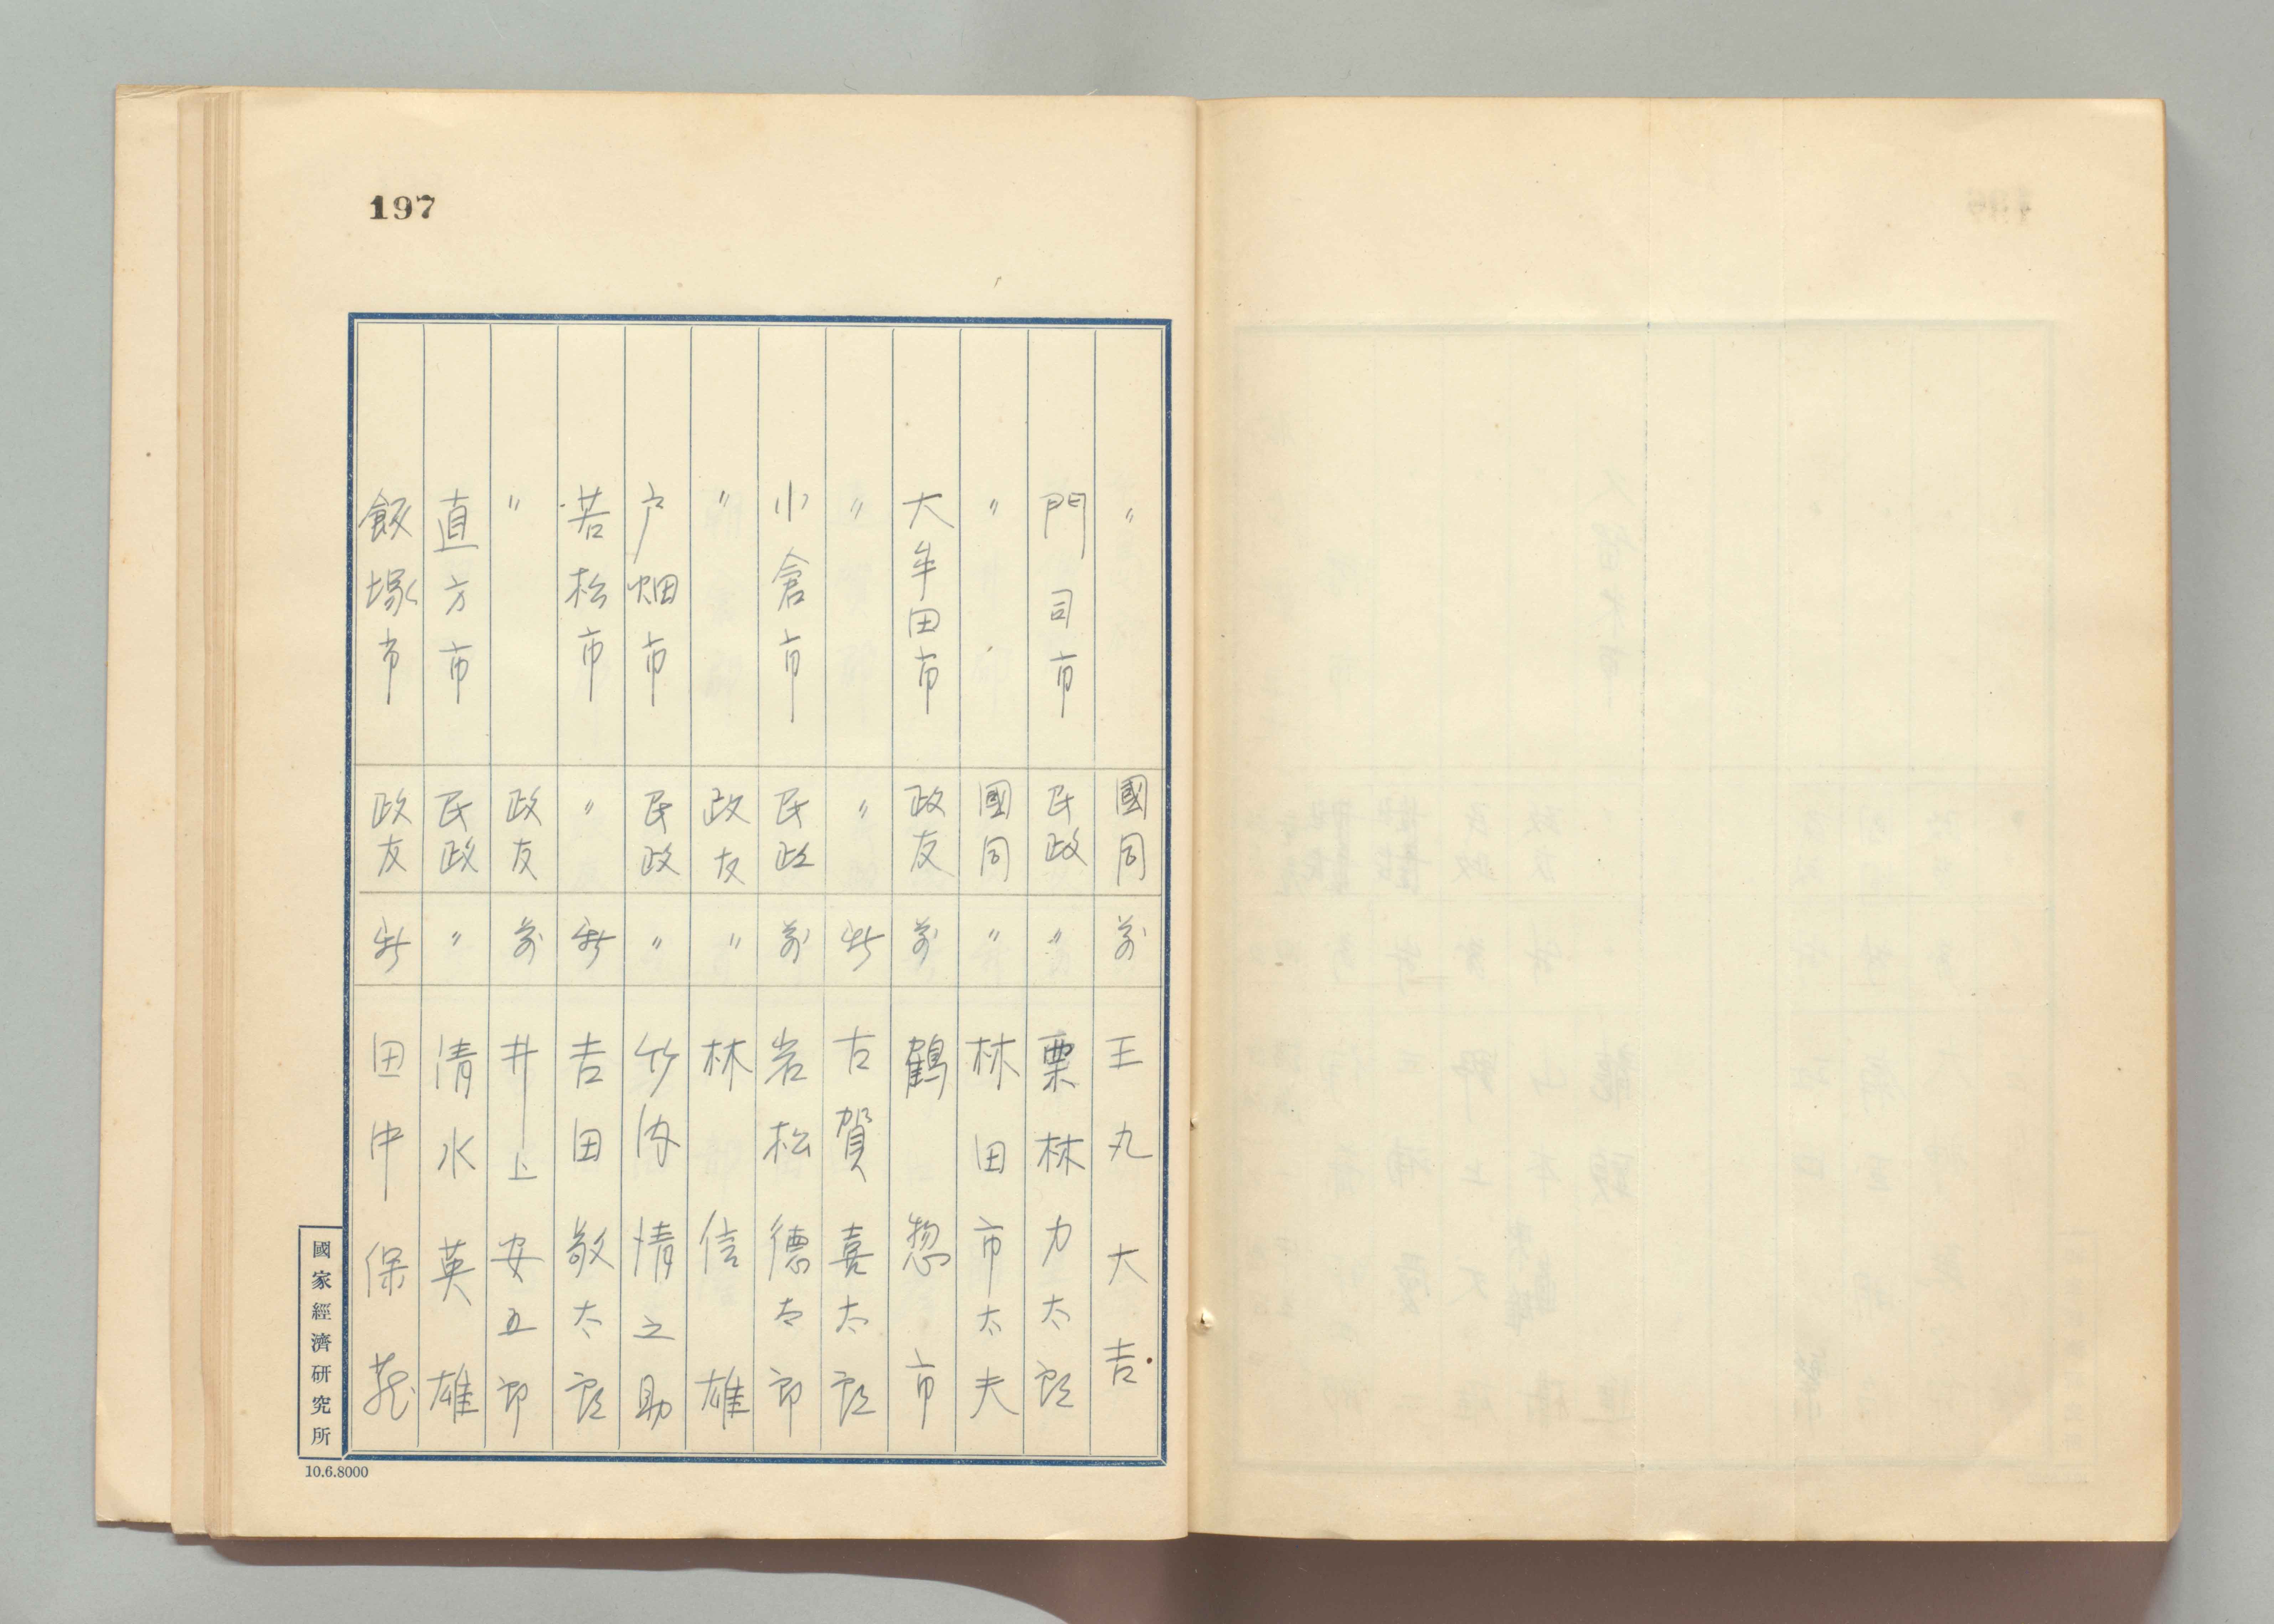 197
〃 國同 前 王丸大吉
門司市 民政 〃 栗林力太郎
〃 國同 〃 林田市太夫
大牟田市 政友 前 鶴惣市
〃 〃 新 古賀喜太郎
小倉市 民政 前 岩松德太郎
〃 政友 〃 林信雄
戸畑市 民政 〃 竹内情之助
若松市 〃 新 吉田敬太郎
〃 政友 前 井上安五郎
直方市 民政 〃 清水英雄
飯塚市 政友 新 田中保蔵
國家經濟硏究所
10.6.8000